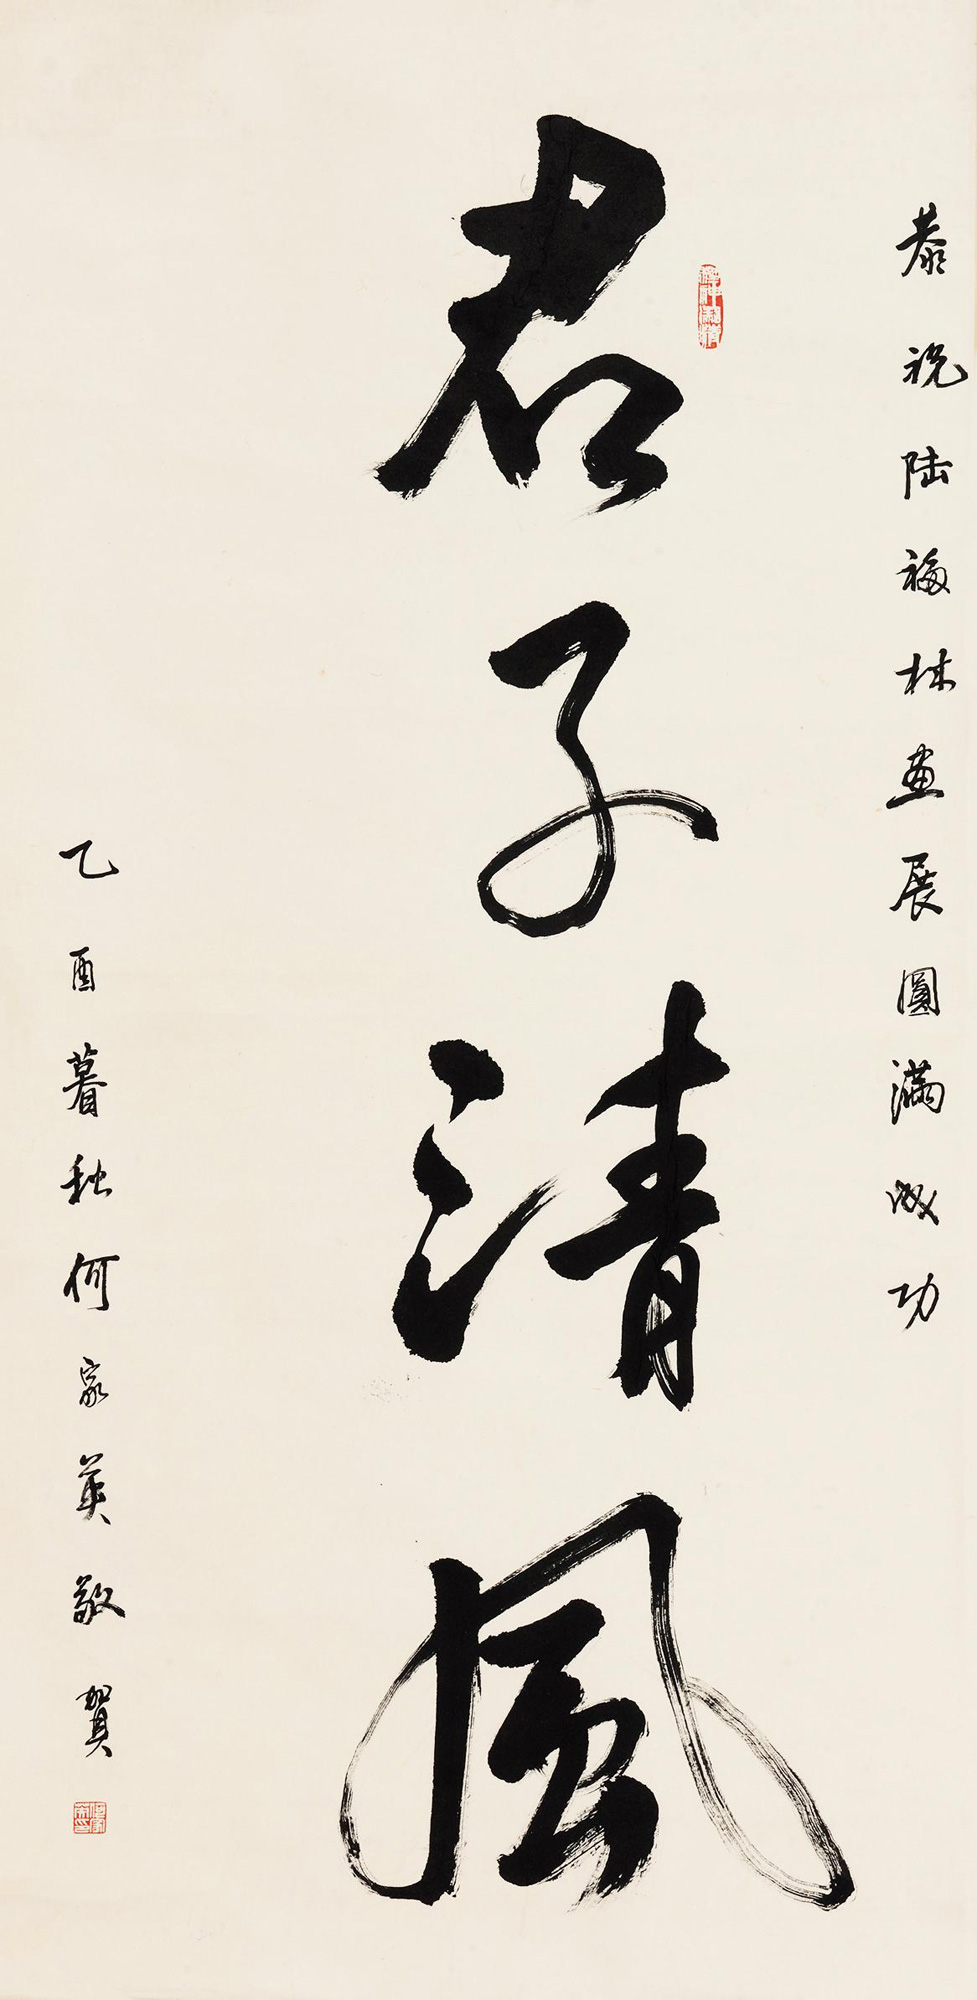 恭祝陆福林画展圓满成功
君子清風
乙酉暮秋何家英敬贺